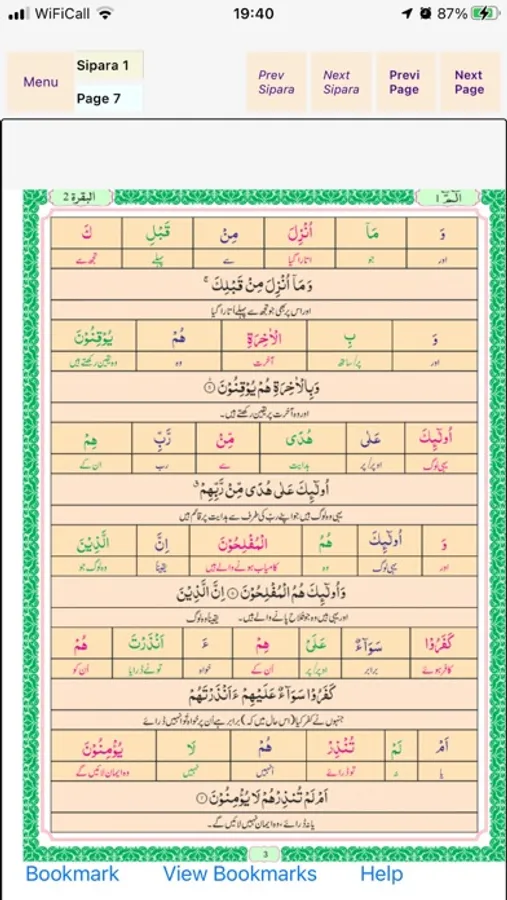 WiFiCall 19:40 87%
Menu
Sipara 1
Page 7
Prev Sipara
Next Sipara
Previ Page
Next Page
البقرة 2 الٓمّٓ 1
وَ مَاۤ اُنْزِلَ مِنْ قَبْلِ كَ
اور جو اتارا گیا سے پہلے تجھ سے
وَمَاۤ اُنْزِلَ مِنْ قَبْلِكَ ۚ
اور اس پر بھی جو تجھ سے پہلے اُتارا گیا
وَ بِ الْاٰخِرَةِ هُمْ يُوْقِنُوْنَ
اور پر/ساتھ آخرت وہ وہ یقین رکھتے ہیں
وَبِالْاٰخِرَةِ هُمْ يُوْقِنُوْنَ
اور وہ آخرت پر یقین رکھتے ہیں۔
اُولٰٓئِكَ عَلٰى هُدًى مِّنْ رَّبِّ هِمْ
یہی لوگ اوپر/پر ہدایت سے رب ان کے
اُولٰٓئِكَ عَلٰى هُدًى مِّنْ رَّبِّهِمْ
یہی وہ لوگ ہیں جو اپنے رب کی طرف سے ہدایت پر قائم ہیں
وَ اُولٰٓئِكَ هُمُ الْمُفْلِحُوْنَ اِنَّ الَّذِيْنَ
اور یہی لوگ وہ کامیاب ہونے والے ہیں یقیناً وہ لوگ جو
وَاُولٰٓئِكَ هُمُ الْمُفْلِحُوْنَ اِنَّ الَّذِيْنَ
اور یہی ہیں وہ جو فلاح پانے والے ہیں۔ یقیناً وہ لوگ
كَفَرُوْا سَوَآءٌ عَلَيْ هِمْ ءَ اَنْذَرْتَ هُمْ
کافر ہوئے برابر اوپر/پر اُن کے خواہ تو نے ڈرایا اُن کو
كَفَرُوْا سَوَآءٌ عَلَيْهِمْ ءَاَنْذَرْتَهُمْ
جنہوں نے کفر کیا (اس حال میں کہ) برابر ہے اُن پر خواہ تو انہیں ڈرائے
اَمْ لَمْ تُنْذِرْ هُمْ لَا يُؤْمِنُوْنَ
یا نہ تو ڈرائے انہیں نہیں وہ ایمان لائیں گے
اَمْ لَمْ تُنْذِرْهُمْ لَا يُؤْمِنُوْنَ
یا نہ ڈرائے، وہ ایمان نہیں لائیں گے۔
3
Bookmark View Bookmarks Help